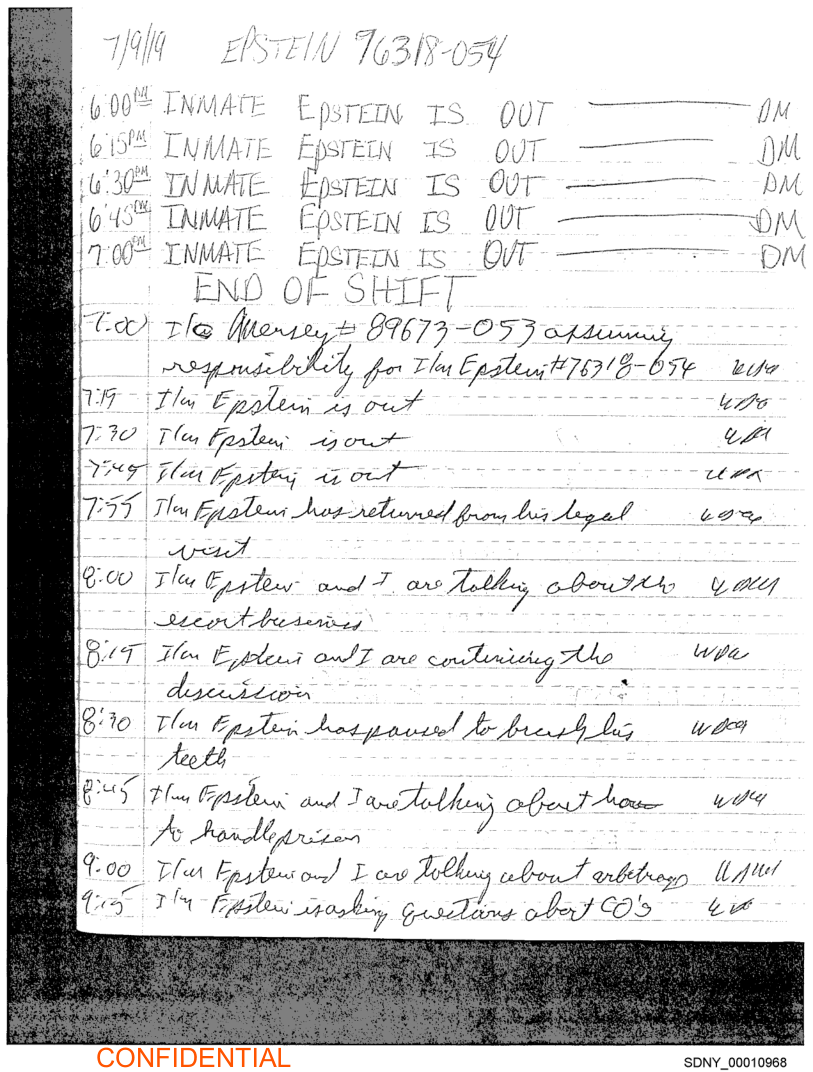 7/9/19 EPSTEIN 76318-054
6:00 PM INMATE EPSTEIN IS OUT DM
6:15 PM INMATE EPSTEIN IS OUT DM
6:30 PM INMATE EPSTEIN IS OUT DM
6:45 PM INMATE EPSTEIN IS OUT DM
7:00 PM INMATE EPSTEIN IS OUT DM
END OF SHIFT
7:00 # 89673-053 assuming
responsibility for I/m Epstein #76318-054
7:15 I/m Epstein is out
7:30 I/m Epstein is out
7:45 I/m Epstein is out
7:55 I/m Epstein has returned from his legal
visit
8:00 I/m Epstein and I are talking about the
escort business
8:15 I/m Epstein and I are continuing the
discussion
8:30 I/m Epstein has paused to brush his
teeth
8:45 I/m Epstein and I are talking about how
to handle prison
9:00 I/m Epstein and I are talking about arbetrage
9:15 I/m Epstein is asking questions about CO's
CONFIDENTIAL
SDNY_00010968